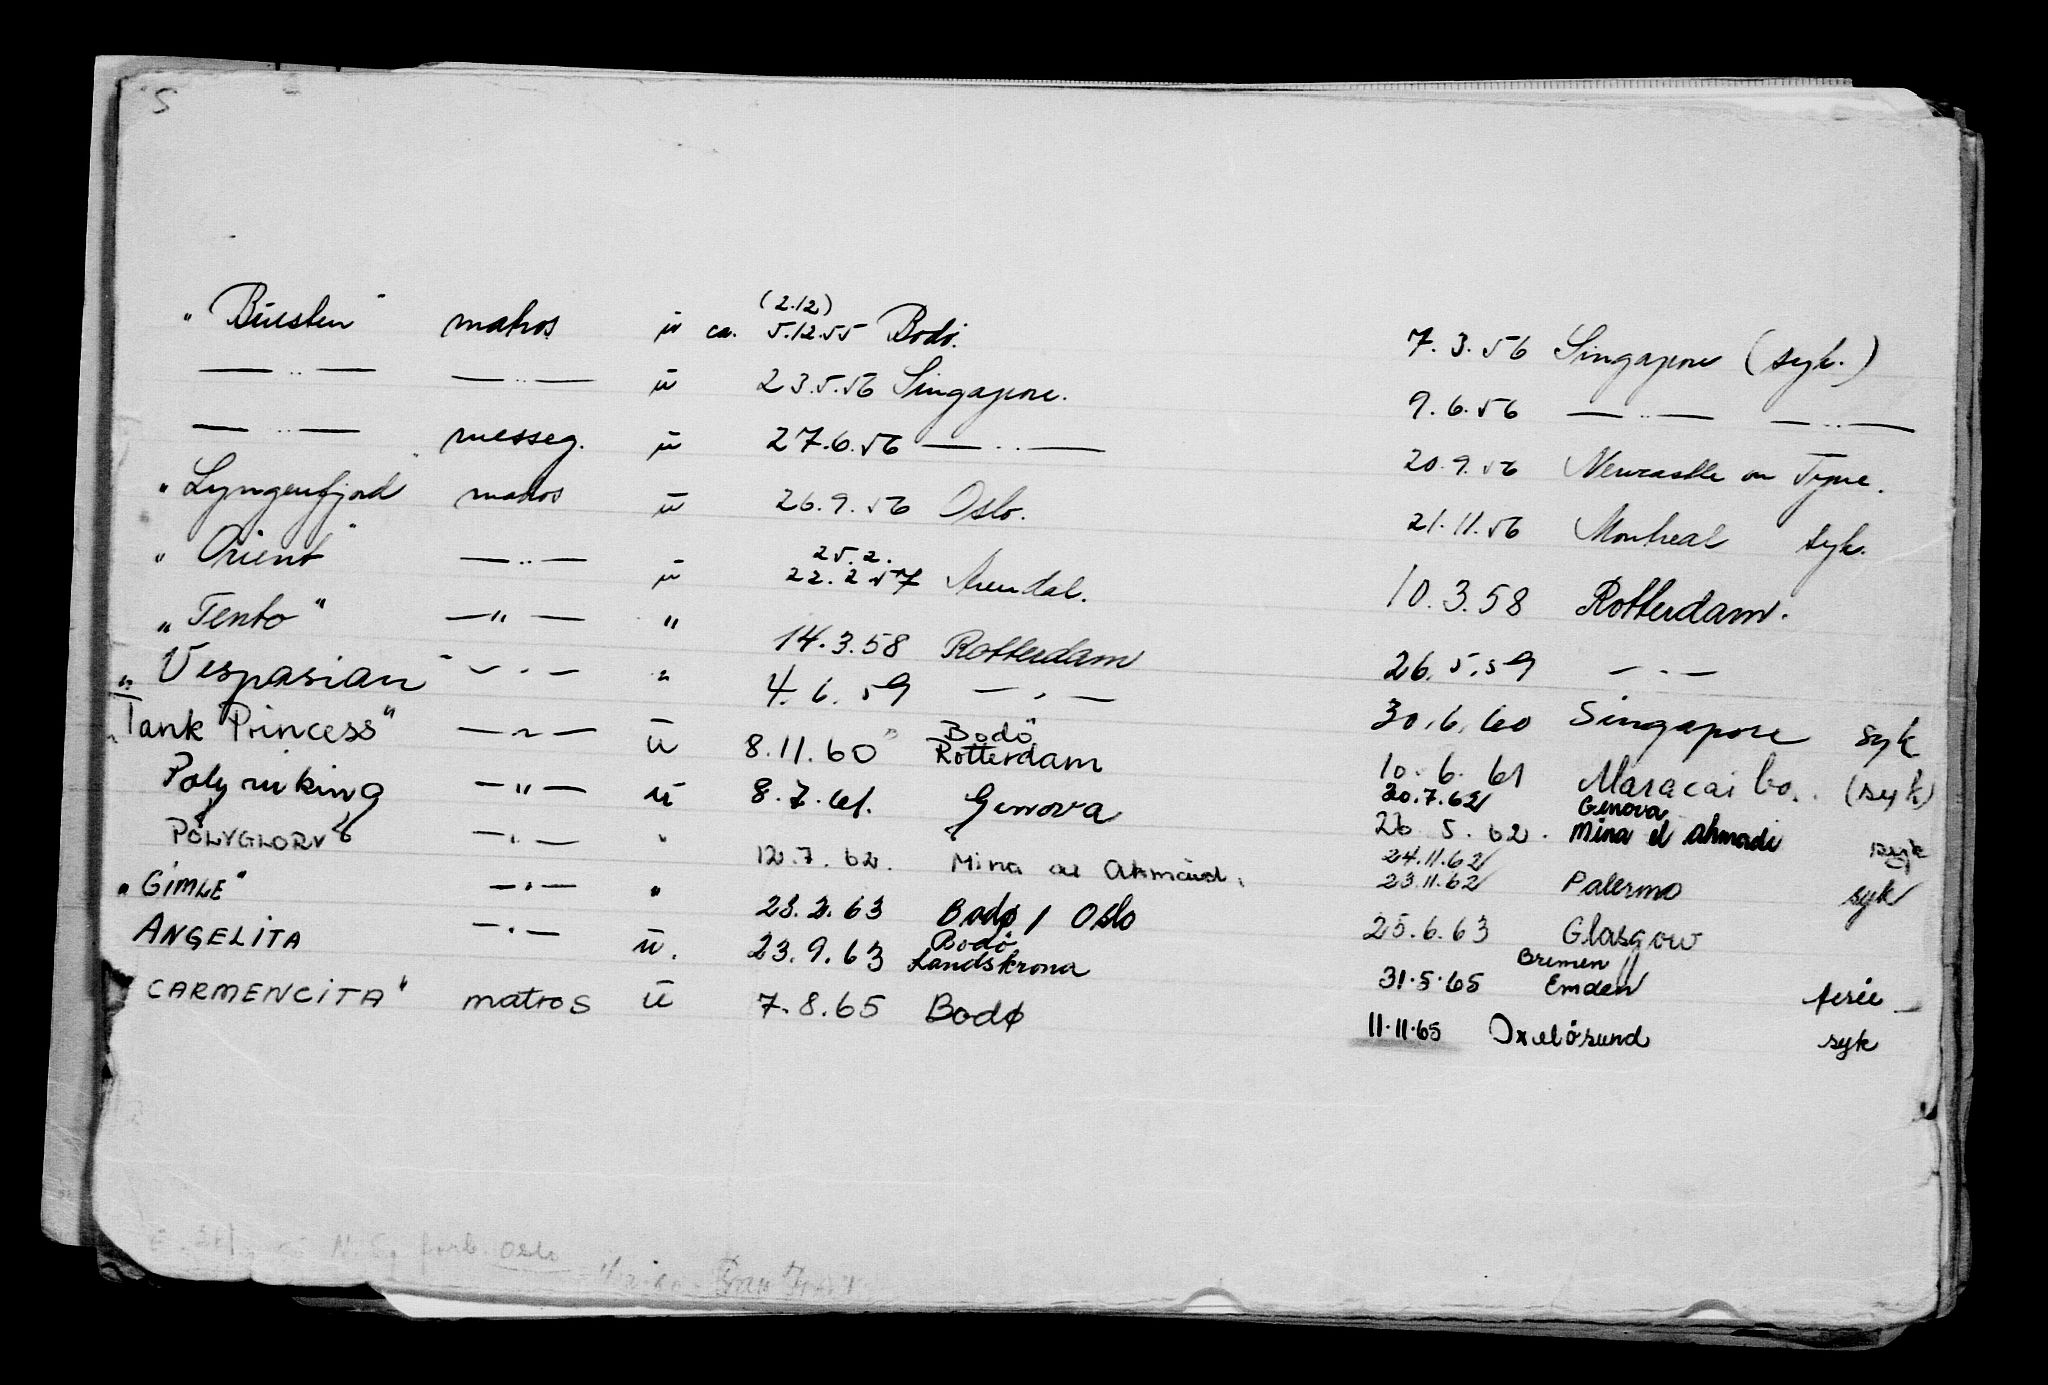 S
(2.12)
matros u ca. 5.12.55 Bodö. 7.3.56 Singapore (syk.)
— " — — " — u 23.5.56 Singapore. 9.6.56 — " — — " —
— " — messeg. u 27.6.56 — " — 20.9.56 Newcastle on Tyne.
"Lyngenfjord" matros u 26.9.56 Oslo. 21.11.56 Montreal syk.
25.2.
"Orient" — " — u 22.2.57 Arendal. 10.3.58 Rotterdam.
"Tento" — " — " 14.3.58 Rotterdam 26.5.59 — " —
"Vespasian" — " — " 4.6.59 — " — 30.6.60 Singapore syk
Bodö
"Tank Princess" — " — u 8.11.60 Rotterdam 10.6.61 Maracaibo. (syk)
30.7.62 Genova
Polyviking — " — u 8.7.61. Genova 26.5.62. Mina el ahmadi syk
24.11.62
POLYGLORY — " — " 12.7.62. Mina al Ahmadi. 23.11.62 Palermo syk
"GIMLE" — " — " 28.2.63 Bodø / Oslo 25.6.63 Glasgow
Bodö Bremen
ANGELITA — " — u. 23.9.63 Landskrona 31.5.65 Emden ferie
CARMENCITA" matros u 7.8.65 Bodø 11.11.65 Oxelösund syk
forb. Oslo